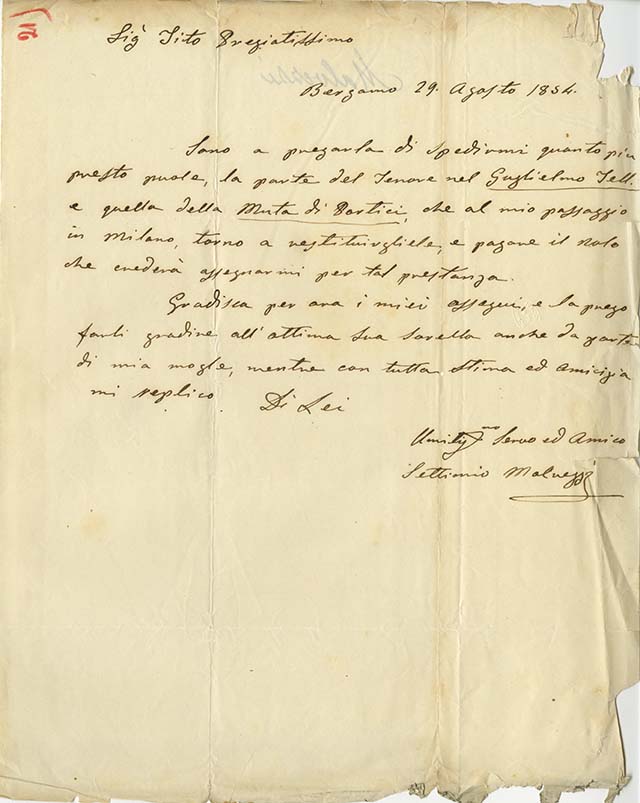 21
Sigr Tito Pregiatissimo
Bergamo 29. Agosto 1854.
Sono a pregarla di spedirmi quanto più
presto puole, la parte del Tenore nel Guglielmo Tell.
e quella della Muta di Portici, che al mio passaggio
in Milano, torno a restituirgliele, e pagare il nolo
che crederà assegnarmi per tal prestanza.
Gradisca per ora i miei ossequi, e la prego
farli gradire all'ottima sua sorella anche da parte
di mia mogle, mentre con tutta stima ed amicizia
mi replico Di Lei
Servo ed Amico
Settimio Malvezzi